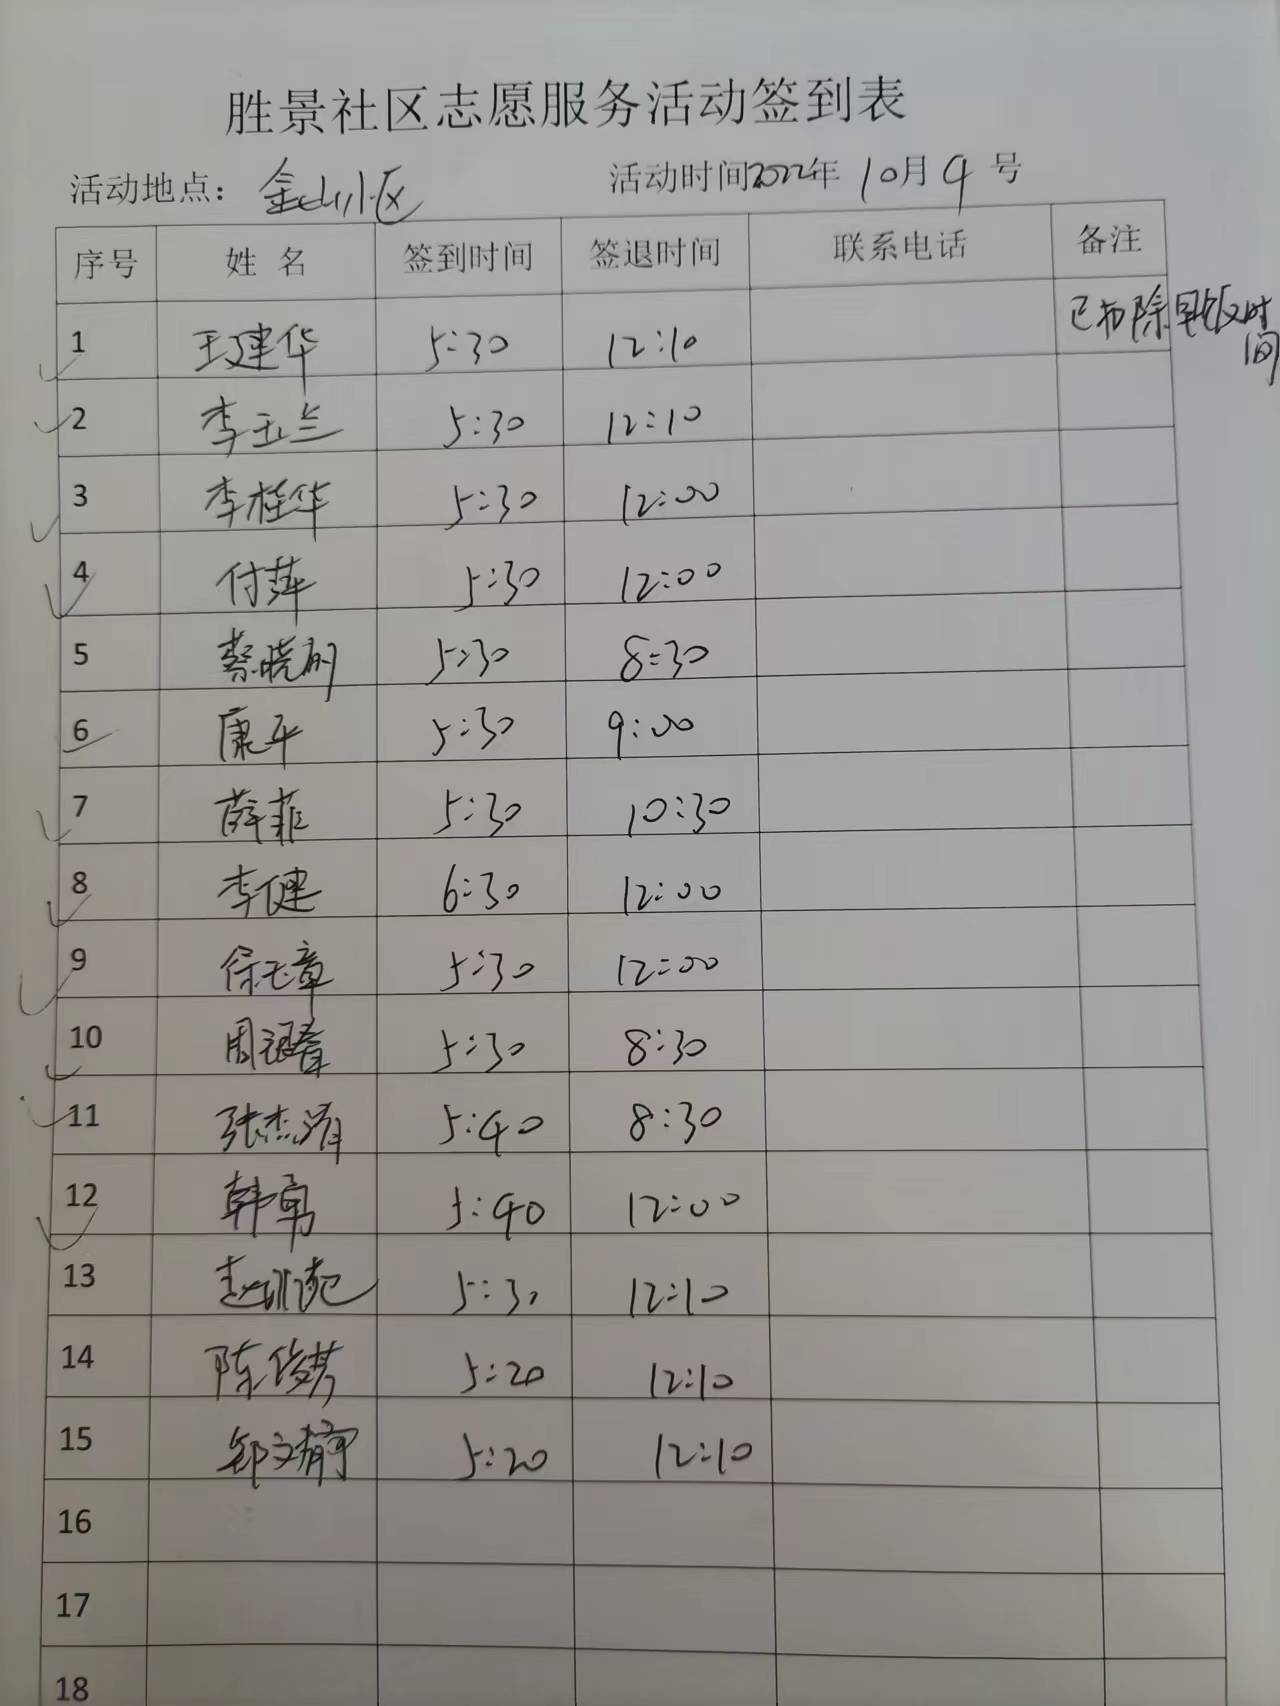 胜景社区志愿服务活动签到表
活动地点：金山小区 活动时间2022年10月9号
序号 姓名 签到时间 签退时间 联系电话 备注
1 王建华 5:30 12:10 已扣除早饭时间
2 李玉兰 5:30 12:10
3 李桂华 5:30 12:00
4 付萍 5:30 12:00
5 蔡晓丽 5:30 8:30
6 康平 5:30 9:00
7 薛菲 5:30 10:30
8 李健 6:30 12:00
9 徐玉章 5:30 12:00
10 5:30 8:30
11 张杰 5:40 8:30
12 韩勇 5:40 12:00
13 赵 5:30 12:10
14 陈俊 5:20 12:10
15 郑文静 5:20 12:10
16
17
18